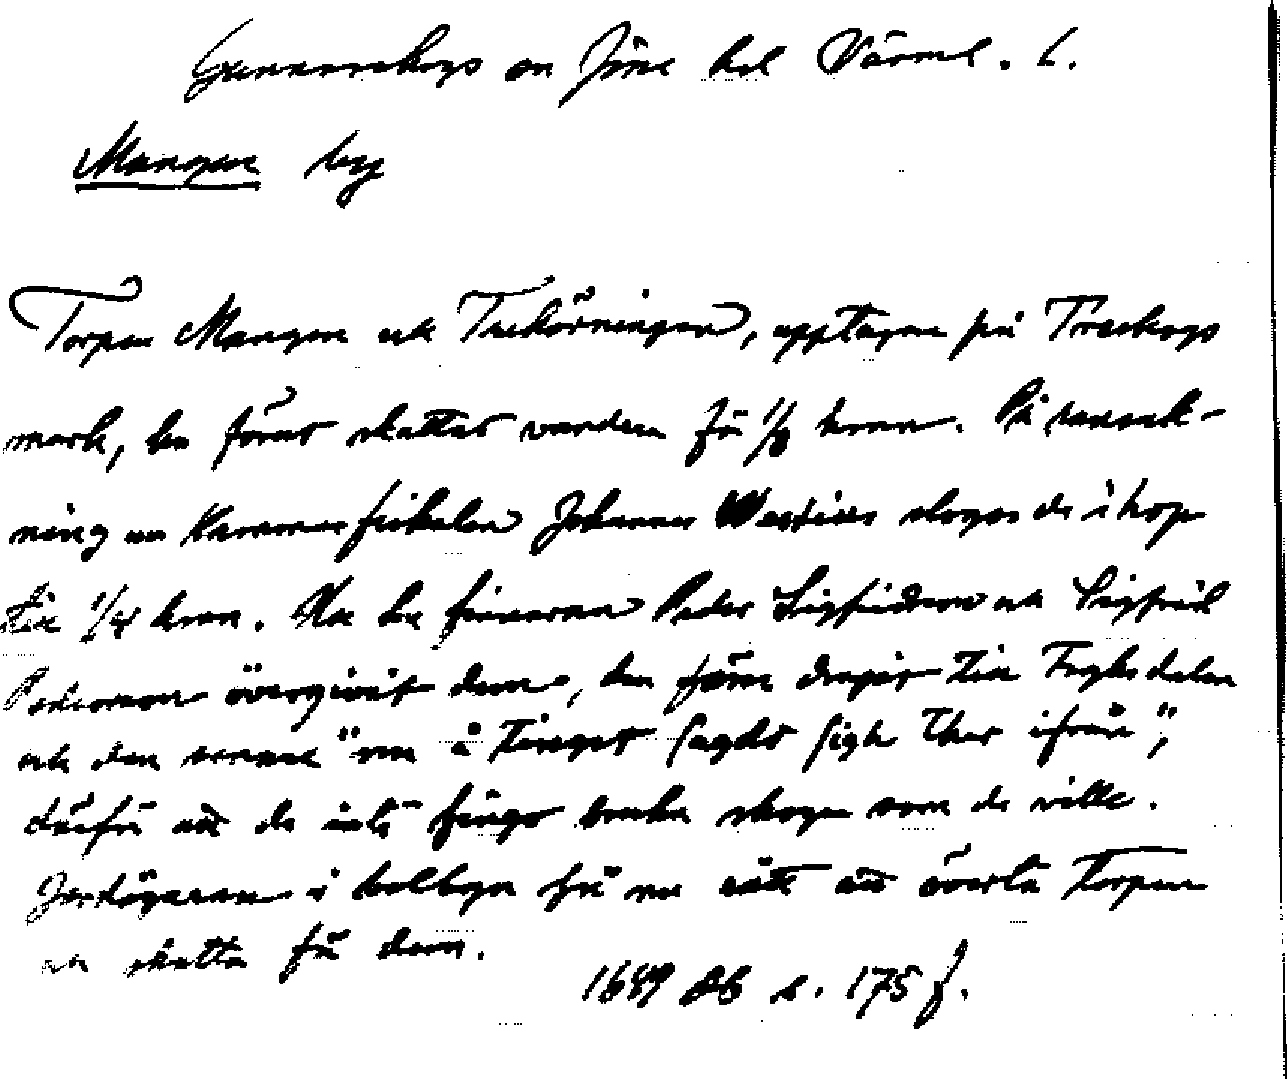 Gunnarskogs sn Jösse hd Värml. l.
Mangen by
Torpen Mangen och Treehörningen, upptagne på Treskogs
mark, ha förut skattat vardera för 1/8 hemn. På ransak-
ning av Kammarfiskalen Johannes slogos de i hop
till 1/4 hemn. Nu ha finnarna Peder Sigfridsson och Sigfrid
Pedersson övergivit dem, den förre dragit till Fryksdalen
och den senare "nu å Tinget sagdt sigh ther ifrån",
därför att de inte fingo bruka skogen som de ville.
Jordägarna i bolbyn få nu rätt att överta torpen
och skatta för dem.
1689 db s. 175 f.